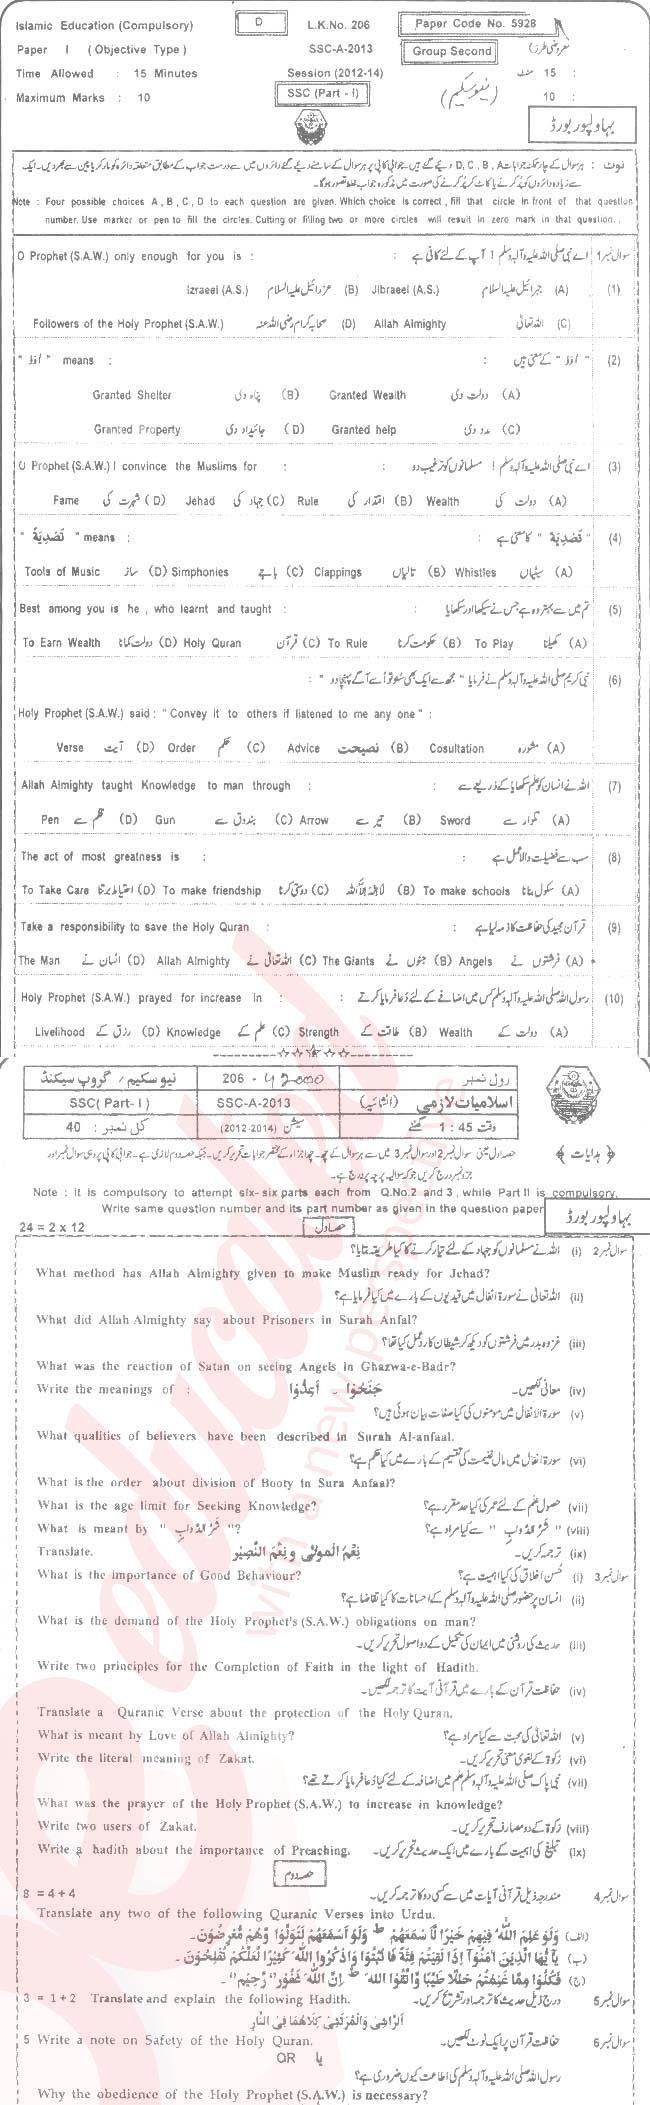 Islamic Education (Compulsory) D L.K.No. 206 Paper Code No. 5928
Paper I (Objective Type) SSC-A-2013 Group Second معروضی طرز
Time Allowed : 15 Minutes Session (2012-14) 15 : منٹ
Maximum Marks : 10 SSC (Part - I) (نیو سکیم) 10 :
بہاولپور بورڈ
نوٹ : ہر سوال کے چار ممکنہ جوابات D, C, B, A دیئے گئے ہیں۔ جوابی کاپی پر ہر سوال کے سامنے دیئے گئے دائروں میں سے درست جواب کے مطابق متعلقہ دائرہ کو مارکر یا پین سے بھر دیں۔ ایک
سے زیادہ دائروں کو پُر کرنے یا کاٹ کر پُر کرنے کی صورت میں مذکورہ جواب غلط تصور ہوگا۔
Note : Four possible choices A , B , C , D to each question are given. Which choice is correct , fill that circle in front of that question
number. Use marker or pen to fill the circles. Cutting or filling two or more circles will result in zero mark in that question. .
O Prophet (S.A.W.) only enough for you is : : اے نبی صلی اللہ علیہ وآلہ وسلم ! آپ کے لئے کافی ہے سوال نمبر 1
Izraeel (A.S.) عزرائیل علیہ السلام (B) Jibraeel (A.S.) جبرائیل علیہ السلام (A) (1)
Followers of the Holy Prophet (S.A.W.) صحابہ کرام رضی اللہ عنہ (D) Allah Almighty اللہ تعالٰی (C)
" اٰوَدْ " means : : " اٰوَدْ " کے معنی ہیں (2)
Granted Shelter پناہ دی (B) Granted Wealth دولت دی (A)
Granted Property جائیداد دی (D) Granted help مدد دی (C)
O Prophet (S.A.W.) I convince the Muslims for : : اے نبی صلی اللہ علیہ وآلہ وسلم ! مسلمانوں کو ترغیب دو (3)
Fame شہرت کی (D) Jehad جہاد کی (C) Rule اقتدار کی (B) Wealth دولت کی (A)
" تَصْدِيَةً " means : : " تَصْدِيَةً " کا معنی ہے (4)
Tools of Music ساز (D) Simphonies باجے (C) Clappings تالیاں (B) Whistles سیٹیاں (A)
Best among you is he , who learnt and taught : : تم میں سے بہتر وہ ہے جس نے سیکھا اور سکھایا (5)
To Earn Wealth دولت کمانا (D) Holy Quran قرآن (C) To Rule حکومت کرنا (B) To Play کھیلنا (A)
نبی کریم صلی اللہ علیہ وآلہ وسلم نے فرمایا " مجھ سے ایک بھی سنو تو اُسے آگے پہنچا دو " : (6)
Holy Prophet (S.A.W.) said : " Convey it to others if listened to me any one " :
Verse آیت (D) Order حکم (C) Advice نصیحت (B) Cosultation مشورہ (A)
Allah Almighty taught Knowledge to man through : : اللہ نے انسان کو علم سکھایا کے ذریعے سے (7)
Pen قلم سے (D) Gun بندوق سے (C) Arrow تیر سے (B) Sword تلوار سے (A)
The act of most greatness is : : سب سے فضیلت والا عمل ہے (8)
To Take Care احتیاط برتنا (D) To make friendship دوستی کرنا (C) لا الٰہ الا اللہ (B) To make schools سکول بنانا (A)
Take a responsibility to save the Holy Quran : : قرآن مجید کی حفاظت کا ذمہ لیا ہے (9)
The Man انسان نے (D) Allah Almighty اللہ تعالٰی نے (C) The Giants جنوں نے (B) Angels فرشتوں نے (A)
Holy Prophet (S.A.W.) prayed for increase in : : رسول اللہ صلی اللہ علیہ وآلہ وسلم کس میں اضافے کے لئے دُعا فرمایا کرتے (10)
Livelihood رزق کے (D) Knowledge علم کے (C) Strength طاقت کے (B) Wealth دولت کے (A)
---------☆☆☆☆☆---------
نیو سکیم / گروپ سیکنڈ 206 - 42000 رول نمبر
SSC( Part- I ) SSC-A-2013 اسلامیات لازمی (انشائیہ)
کل نمبر : 40 سیشن (2012-2014) وقت 1 : 45 گھنٹے
﴿ ہدایات ﴾ حصہ اول یعنی سوال نمبر 2 اور سوال نمبر 3 میں سے ہر سوال کے چھ، چھ اجزاء کے مختصر جوابات تحریر کریں۔ جبکہ حصہ دوم لازمی ہے۔ جوابی کاپی پر وہی سوال نمبر اور
جزو نمبر درج کریں جو کہ سوالیہ پرچہ پر درج ہے۔
Note : It is compulsory to attempt six-six parts each from Q.No.2 and 3 , while Part II is compulsory.
Write same question number and its part number as given in the question paper
بہاولپور بورڈ
24 = 2 x 12 حصہ اول
سوال نمبر 2 (i) اللہ نے مسلمانوں کو جہاد کے لئے تیار کرنے کا کیا طریقہ بتایا؟
What method has Allah Almighty given to make Muslim ready for Jehad?
(ii) اللہ تعالٰی نے سورۃ انفال میں قیدیوں کے بارے میں کیا فرمایا ہے؟
What did Allah Almighty say about Prisoners in Surah Anfal?
(iii) غزوہ بدر میں فرشتوں کو دیکھ کر شیطان کا ردعمل کیا تھا؟
What was the reaction of Satan on seeing Angels in Ghazwa-e-Badr?
Write the meanings of : جَنَحُوْا ۔ اَعِدُّوْا (iv) معانی لکھیں۔
(v) سورۃ الانفال میں مومنوں کی کیا صفات بیان ہوئی ہیں؟
What qualities of believers have been described in Surah Al-anfaal.
(vi) سورۃ انفال میں مال غنیمت کی تقسیم کے بارے میں کیا حکم ہے؟
What is the order about division of Booty in Sura Anfaal?
What is the age limit for Seeking Knowledge? (vii) حصول علم کے لئے عمر کی کیا حد مقرر ہے؟
What is meant by " شَرَّ الدَّوَابِّ "? (viii) " شَرَّ الدَّوَابِّ " سے کیا مراد ہے؟
Translate. نِعْمَ الْمَوْلٰى وَنِعْمَ النَّصِيْر (ix) ترجمہ کریں۔
What is the importance of Good Behaviour? سوال نمبر 3 (i) حُسن اخلاق کی کیا اہمیت ہے؟
(ii) انسان پر حضور صلی اللہ علیہ وآلہ وسلم کے احسانات کا کیا تقاضا ہے؟
What is the demand of the Holy Prophet's (S.A.W.) obligations on man?
(iii) حدیث کی روشنی میں ایمان کی تکمیل کے دو اصول تحریر کریں۔
Write two principles for the Completion of Faith in the light of Hadith.
(iv) حفاظت قرآن کے بارے میں قرآنی آیت کا ترجمہ لکھیں۔
Translate a Quranic Verse about the protection of the Holy Quran.
What is meant by Love of Allah Almighty? (v) اللہ تعالٰی کی محبت سے کیا مراد ہے؟
Write the literal meaning of Zakat. (vi) زکوٰۃ کے لغوی معنی تحریر کریں۔
(vii) نبی پاک صلی اللہ علیہ وآلہ وسلم علم میں اضافہ کے لئے کیا دُعا فرمایا کرتے تھے؟
What was the prayer of the Holy Prophet (S.A.W.) to increase in knowledge?
Write two users of Zakat. (viii) زکوٰۃ کے دو مصارف تحریر کریں۔
Write a hadith about the importance of Preaching. (ix) تبلیغ کی اہمیت کے بارے میں ایک حدیث تحریر کریں۔
حصہ دوم
8 = 4 + 4 سوال نمبر 4 مندرجہ ذیل قرآنی آیات میں سے کسی دو کا ترجمہ کریں۔
Translate any two of the following Quranic Verses into Urdu.
(الف) وَلَوْ عَلِمَ اللّٰهُ فِيْهِمْ خَيْرًا لَّاَسْمَعَهُمْ ط وَلَوْ اَسْمَعَهُمْ لَتَوَلَّوْا وَّهُمْ مُّعْرِضُوْنَ۔
(ب) يٰۤاَيُّهَا الَّذِيْنَ اٰمَنُوْۤا اِذَا لَقِيْتُمْ فِئَةً فَاثْبُتُوْا وَاذْكُرُوا اللّٰهَ كَثِيْرًا لَّعَلَّكُمْ تُفْلِحُوْنَ۔
(ج) فَكُلُوْا مِمَّا غَنِمْتُمْ حَلٰلًا طَيِّبًا وَّاتَّقُوا اللّٰهَ ط اِنَّ اللّٰهَ غَفُوْرٌ رَّحِيْمٌ۔
3 = 1 + 2 Translate and explain the following Hadith. سوال نمبر 5 درج ذیل حدیث کا ترجمہ اور تشریح کریں۔
اَلرَّاشِیْ وَالْمُرْتَشِیْ كِلَاهُمَا فِی النَّارِ
5 Write a note on Safety of the Holy Quran. سوال نمبر 6 حفاظت قرآن پر ایک نوٹ لکھیں۔
OR یا
رسول اللہ صلی اللہ علیہ وآلہ وسلم کی اطاعت کیوں ضروری ہے؟
Why the obedience of the Holy Prophet (S.A.W.) is necessary?
educated
with a new perspective